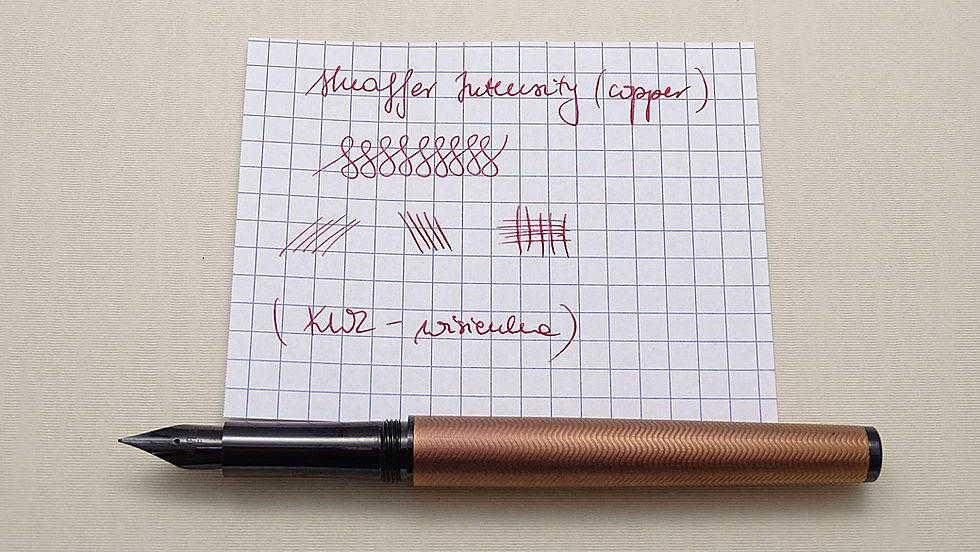 Sheaffer Intensity (copper)
(KWZ - wisienka)